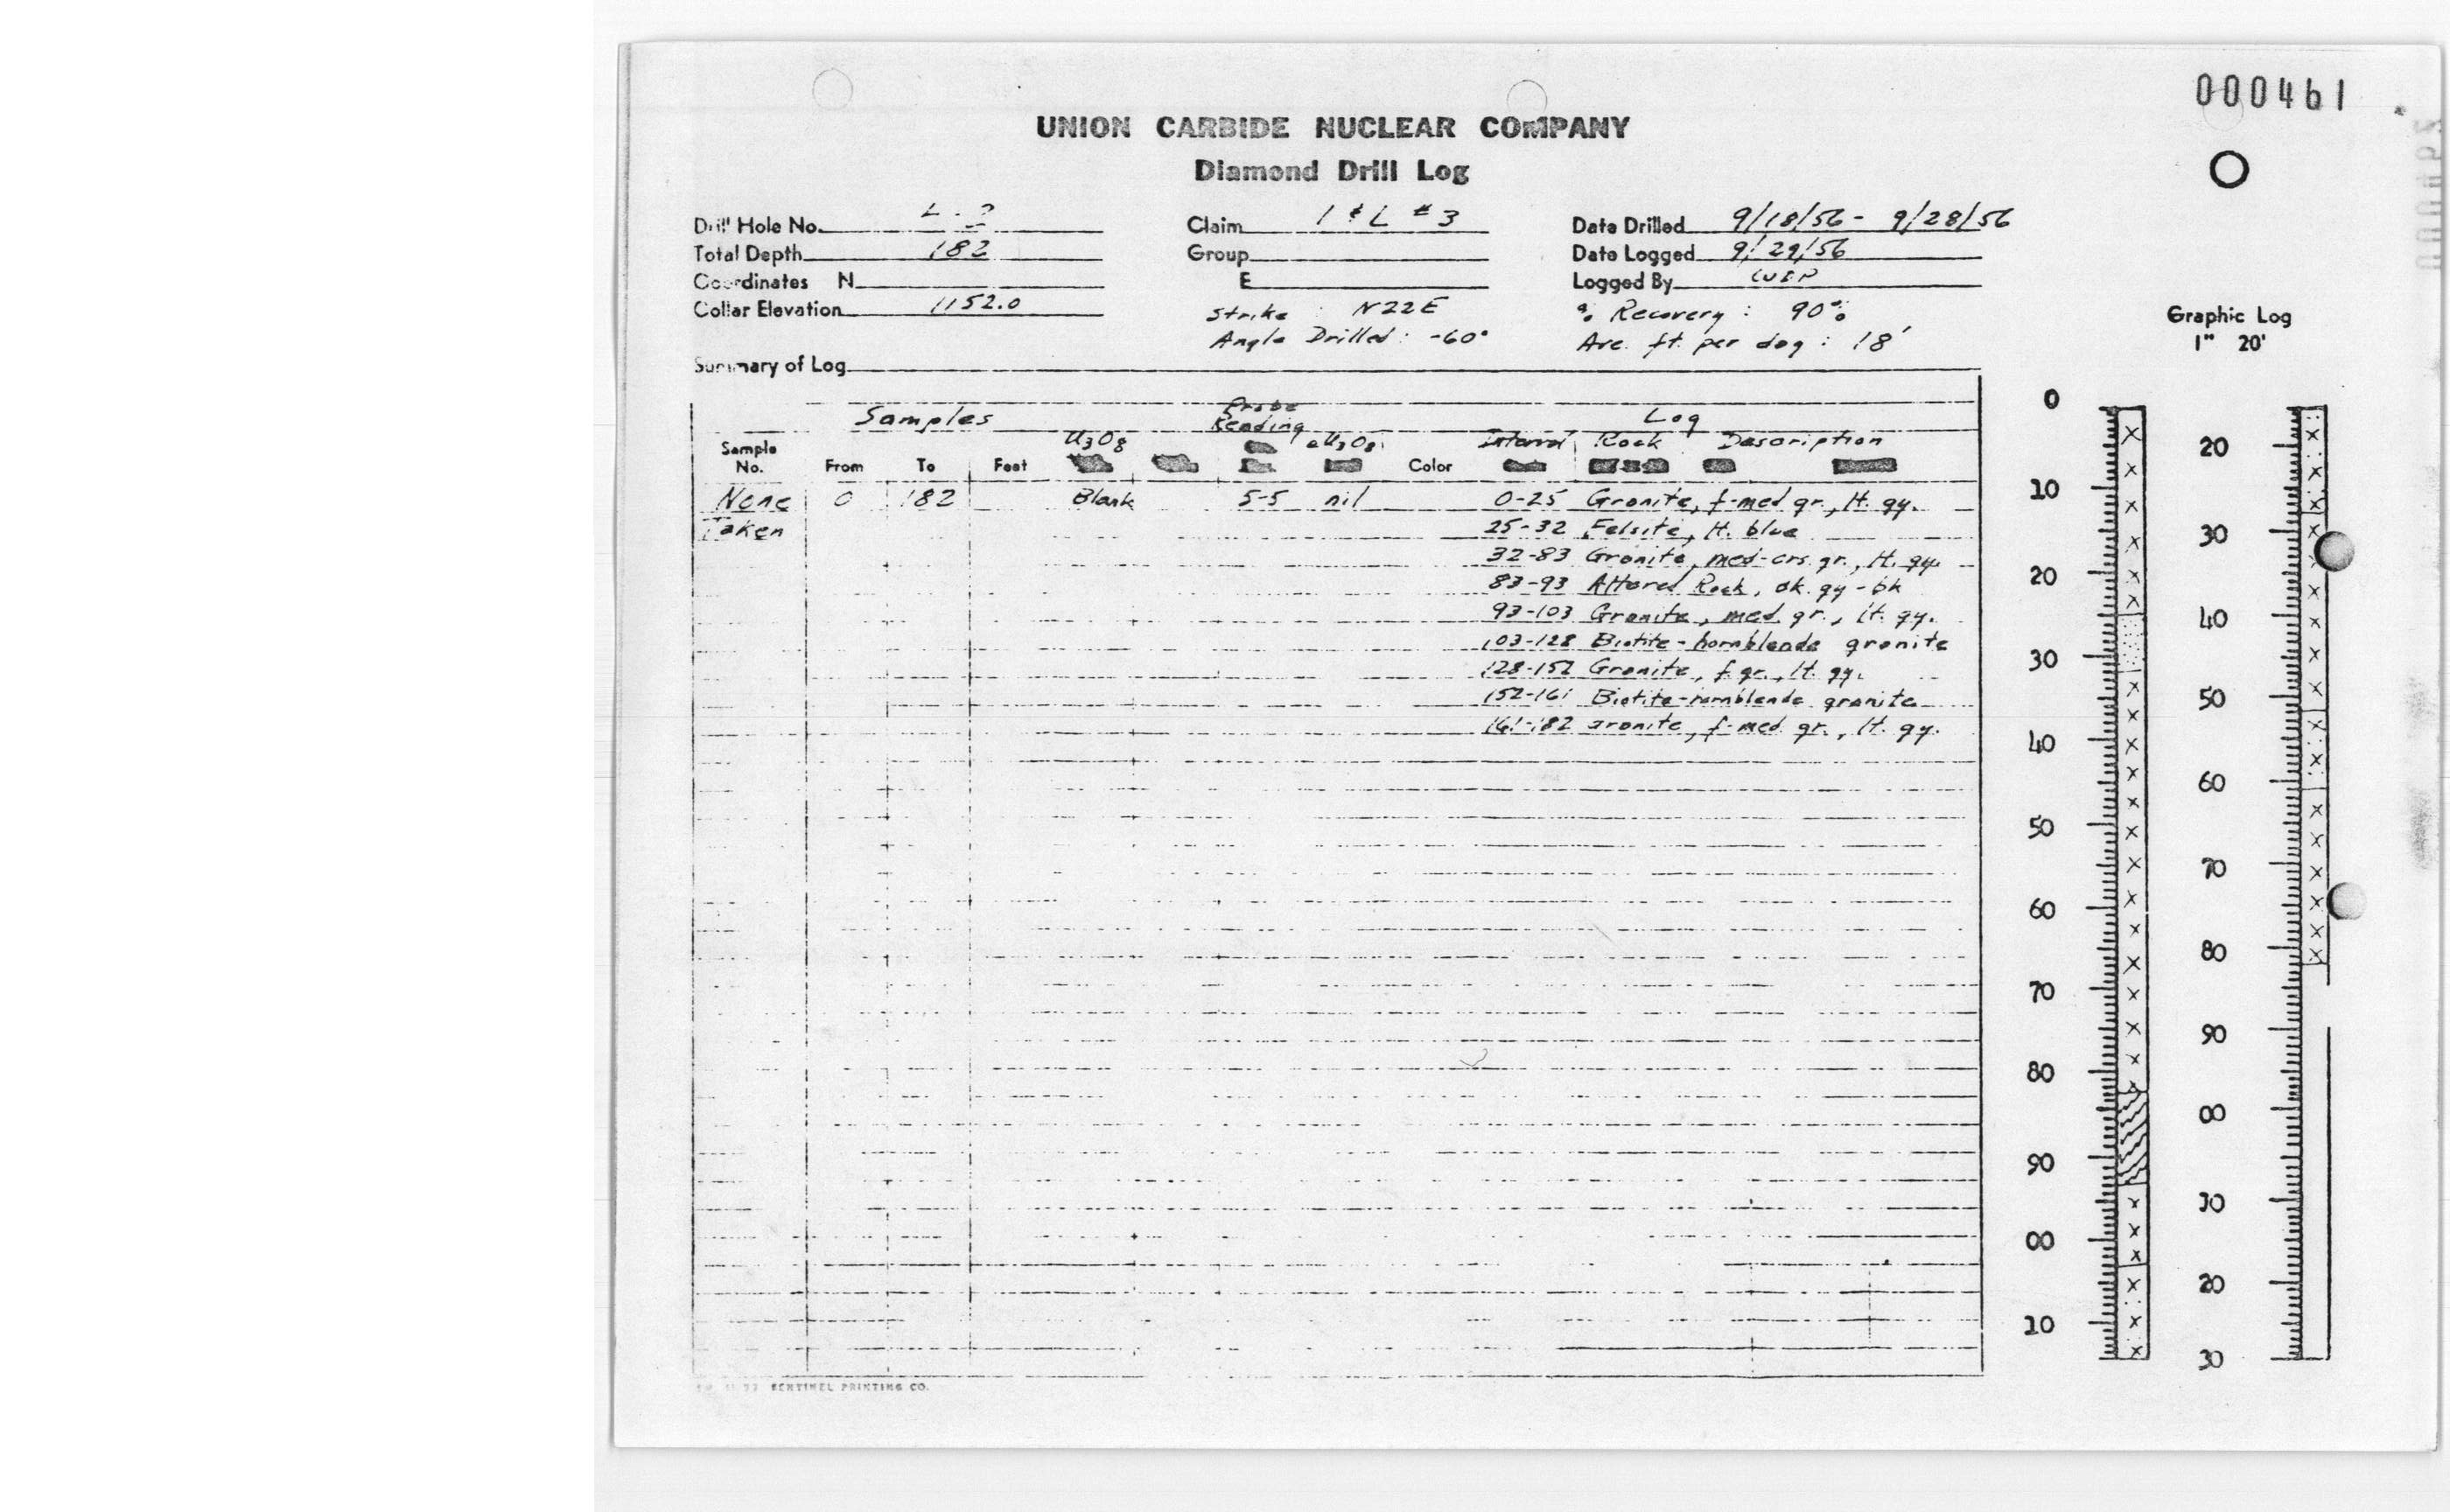 000461
UNION CARBIDE NUCLEAR COMPANY
Diamond Drill Log
Drill Hole No. Claim 1 & L #3 Date Drilled 9/18/56 - 9/28/56
Total Depth 182 Group Date Logged 9/29/56
Coordinates N E Logged By
Collar Elevation 1152.0 Strike : N22E % Recovery : 90%
Angle Drilled : -60° Ave. ft. per day : 18'
Summary of Log
Graphic Log
1" 20'
Samples Probe Reading Log
Sample No. From To Feet U3O8 eU3O8 Color Interval Rock Description
None 0 182 Blank 5-5 nil 0-25 Granite, f-med gr., lt. gy.
Taken 25-32 Felsite, lt. blue
32-83 Granite, med-crs. gr., lt. gy.
83-93 Altered Rock, dk. gy - bk
93-103 Granite, med. gr., lt. gy.
103-128 Biotite-hornblende granite
128-152 Granite, f gr., lt. gy.
152-161 Biotite-hornblende granite
161-182 Granite, f-med. gr., lt. gy.
0
10
20
30
40
50
60
70
80
90
00
10
20
30
40
50
60
70
80
90
00
10
20
30
SENTINEL PRINTING CO.